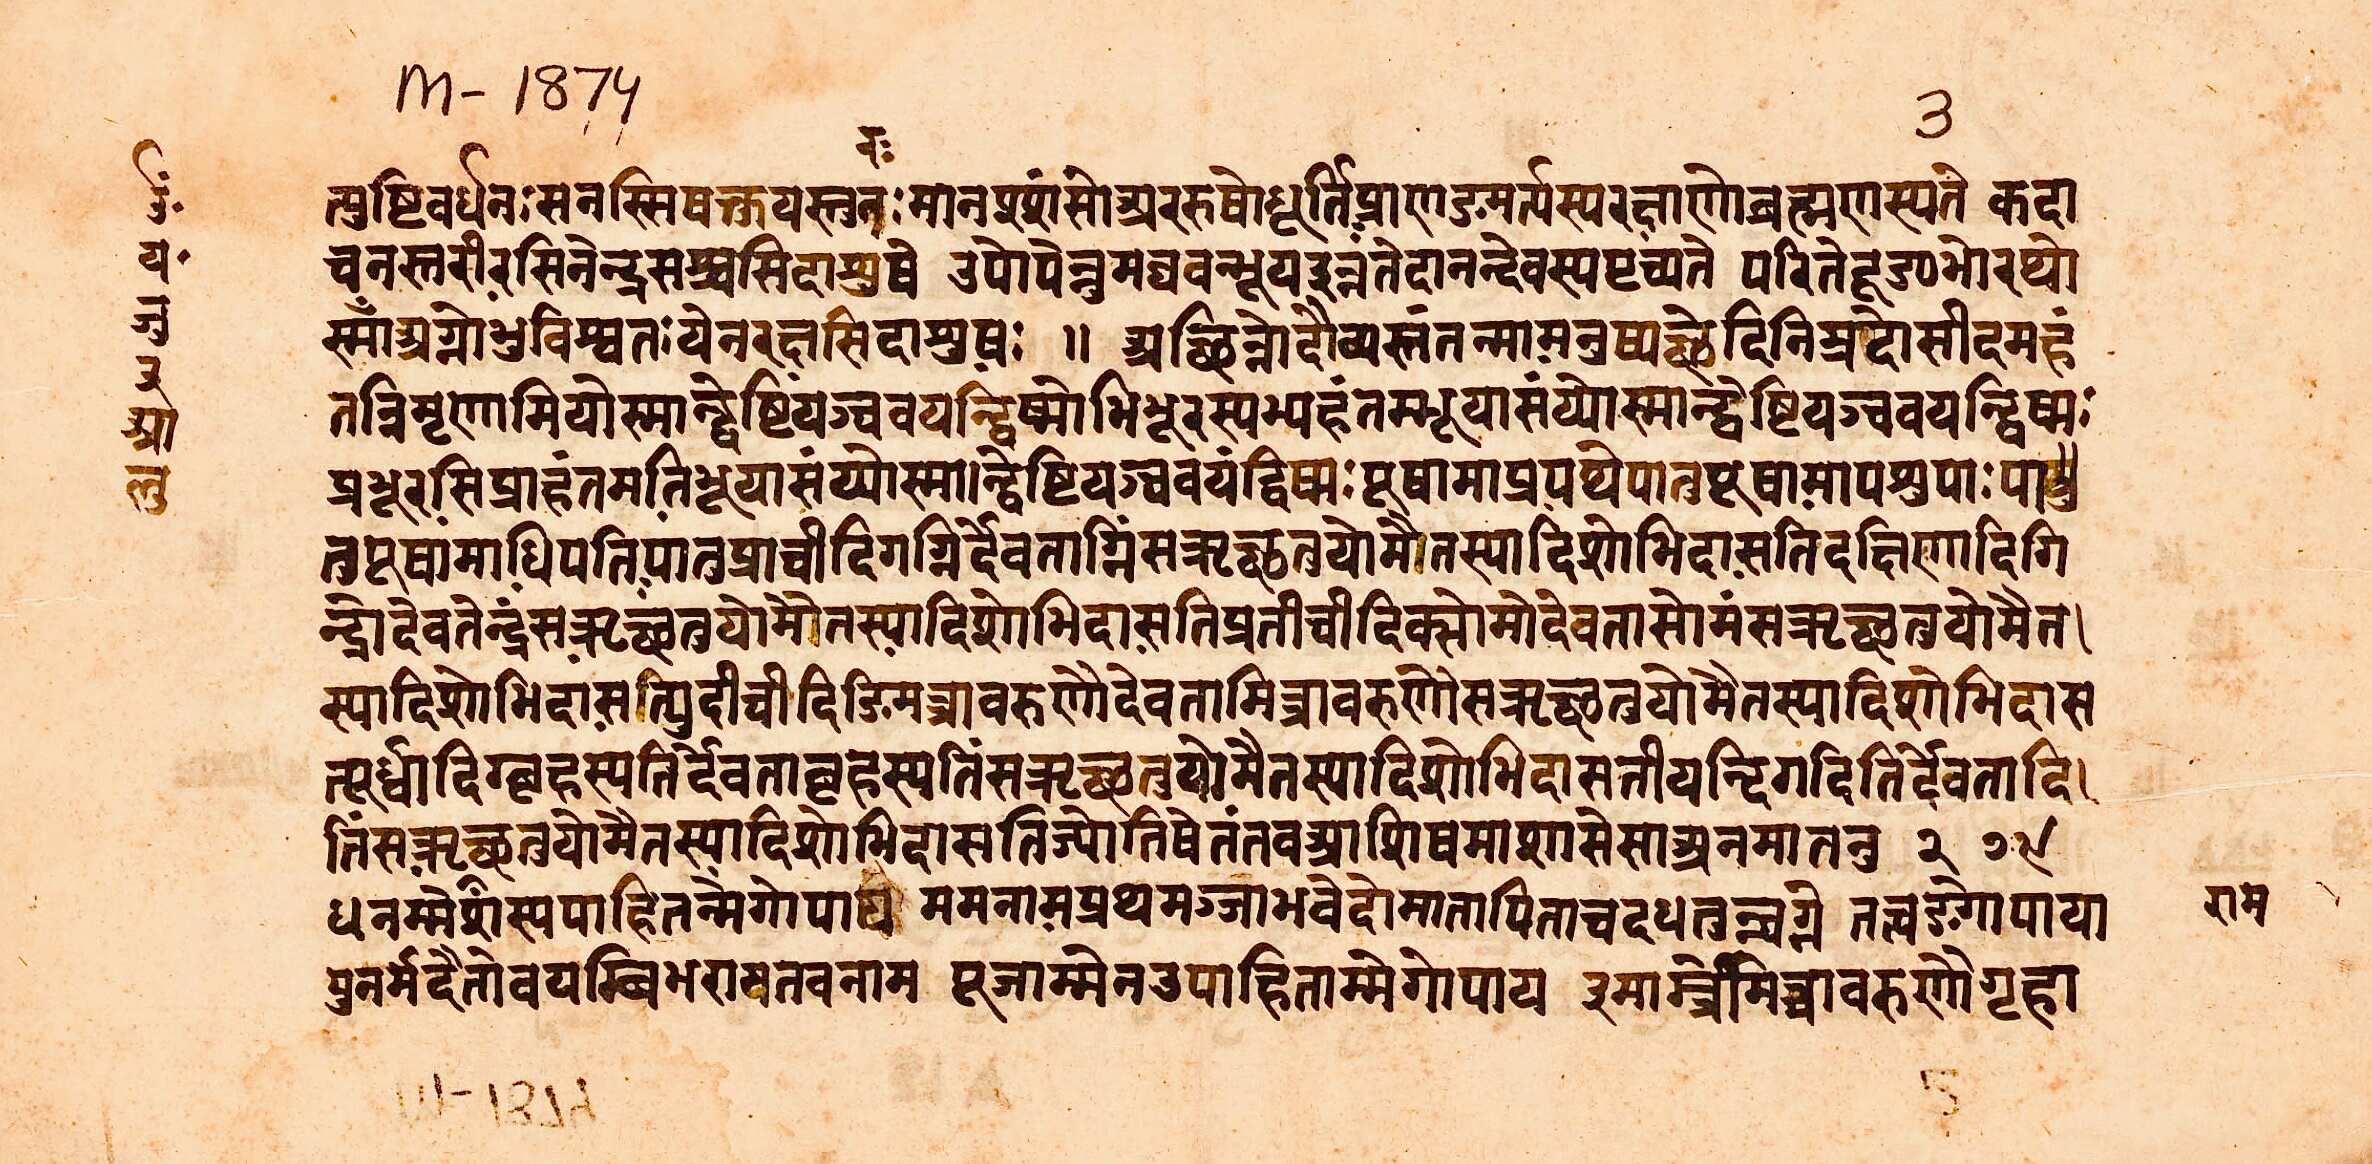 M-1874
3
रः
त्पुष्टिवर्धनःसनस्सिषक्तुयस्तुतःमानश्शंसोअररुषोधूर्तिप्राणङ्मर्त्यस्यरक्षाणोब्रह्मणस्पते कदा
चनस्तरीरसिनेन्द्रसश्चसिदाशुषे उपोपेन्नुमघवन्भूयइन्नंतेदानन्देवस्यपृच्यते परितेदूडभोरथो
स्माँअग्नोभुविश्वतःयेनरक्षसिदाशुषः ॥ अच्छिन्नोदैव्यस्तंतन्मामनुष्यच्छेदिनिम्रदोसीदमहं
तन्निमृणामियोस्मान्द्वेष्टियञ्चवयन्द्विष्मोभिभूरस्यभ्यहंतम्भूयासंय्योस्मान्द्वेष्टियञ्चवयन्द्विष्मः
प्रभूरसिप्राहंतमतिभूयासंय्योस्मान्द्वेष्टियञ्चवयंद्विष्मःपूषामाप्रपथेपातुपूषामापशुपाःपा
तुपूषामाधिपतिपातुप्राचीदिगग्निर्देवताग्निंसऋच्छतुयोमैतस्यादिशोभिदासतिदक्षिणादिगि
न्द्रोदेवतेन्द्रंसऋच्छतुयोमैतस्यादिशोभिदासतिप्रतीचीदिक्सोमोदेवतासोमंसऋच्छतुयोमैत।
स्यादिशोभिदासत्युदीचीदिङ्मित्रावरुणौदेवतामित्रावरुणौसऋच्छतुयोमैतस्यादिशोभिदास
त्यूर्ध्वादिग्बृहस्पतिर्देवताबृहस्पतिंसऋच्छतुयोमैतस्यादिशोभिदासतीयन्दिगदितिर्देवतादि।
तिंसऋच्छतुयोमैतस्यादिशोभिदासतिज्योतिषेतंतवआशिषमाशासेसाअनमातनु २ १५
धनम्मेशंस्यपाहितन्मेगोपाय ममनामप्रथमञ्जाभवेदोमातापिताचदधतुन्वग्ने तत्वङ्गोपाया
पुनर्मदैतोवयम्बिभरामतवनाम पूजाम्मेनउपाहिताम्मेगोपाय इमाम्मेमित्रावरुणौगृहा
राम